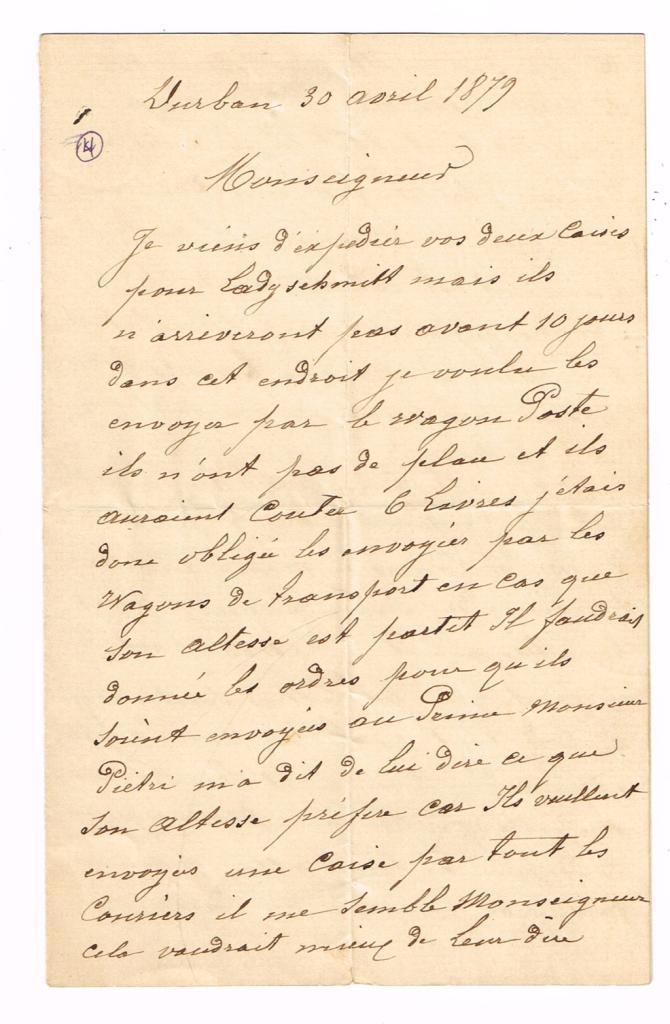 Durban 30 avril 1879
Monseigneur
Je viens d'éxpediér vos deux Caises
pour Ladyschmitt mais ils
n'arriveront pas avant 10 jours
dans cet endroit je voulu les
envoyer par le wagon Poste
ils n'ont pas de place et ils
auraient Coutée 6 Livres j'étais
donc obligée les envoyiér par les
Wagons de transport en Cas que
Son Altesse est partit Il faudrait
donnée les ordres pour qu'ils
soient envoyés au Prince Monsieur
Piétri m'a dit de lui dire ce que
Son Altesse préfere Car Ils veullent
envoyés une Caise par tout les
Couriérs il me Semble Monseigneur
cela vaudrait mieux de Leur dire